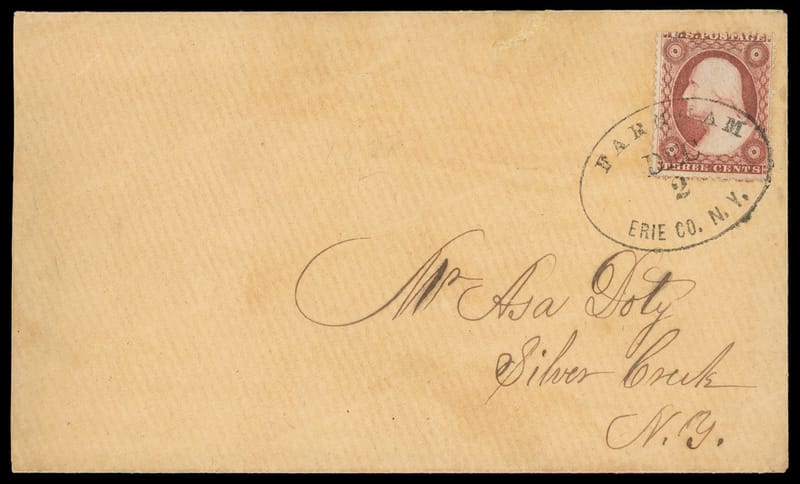 U.S. POSTAGE
THREE CENTS
FARNHAM
DEC
2
ERIE CO. N.Y.
Mr Asa Doty
Silver Creek
N.Y.